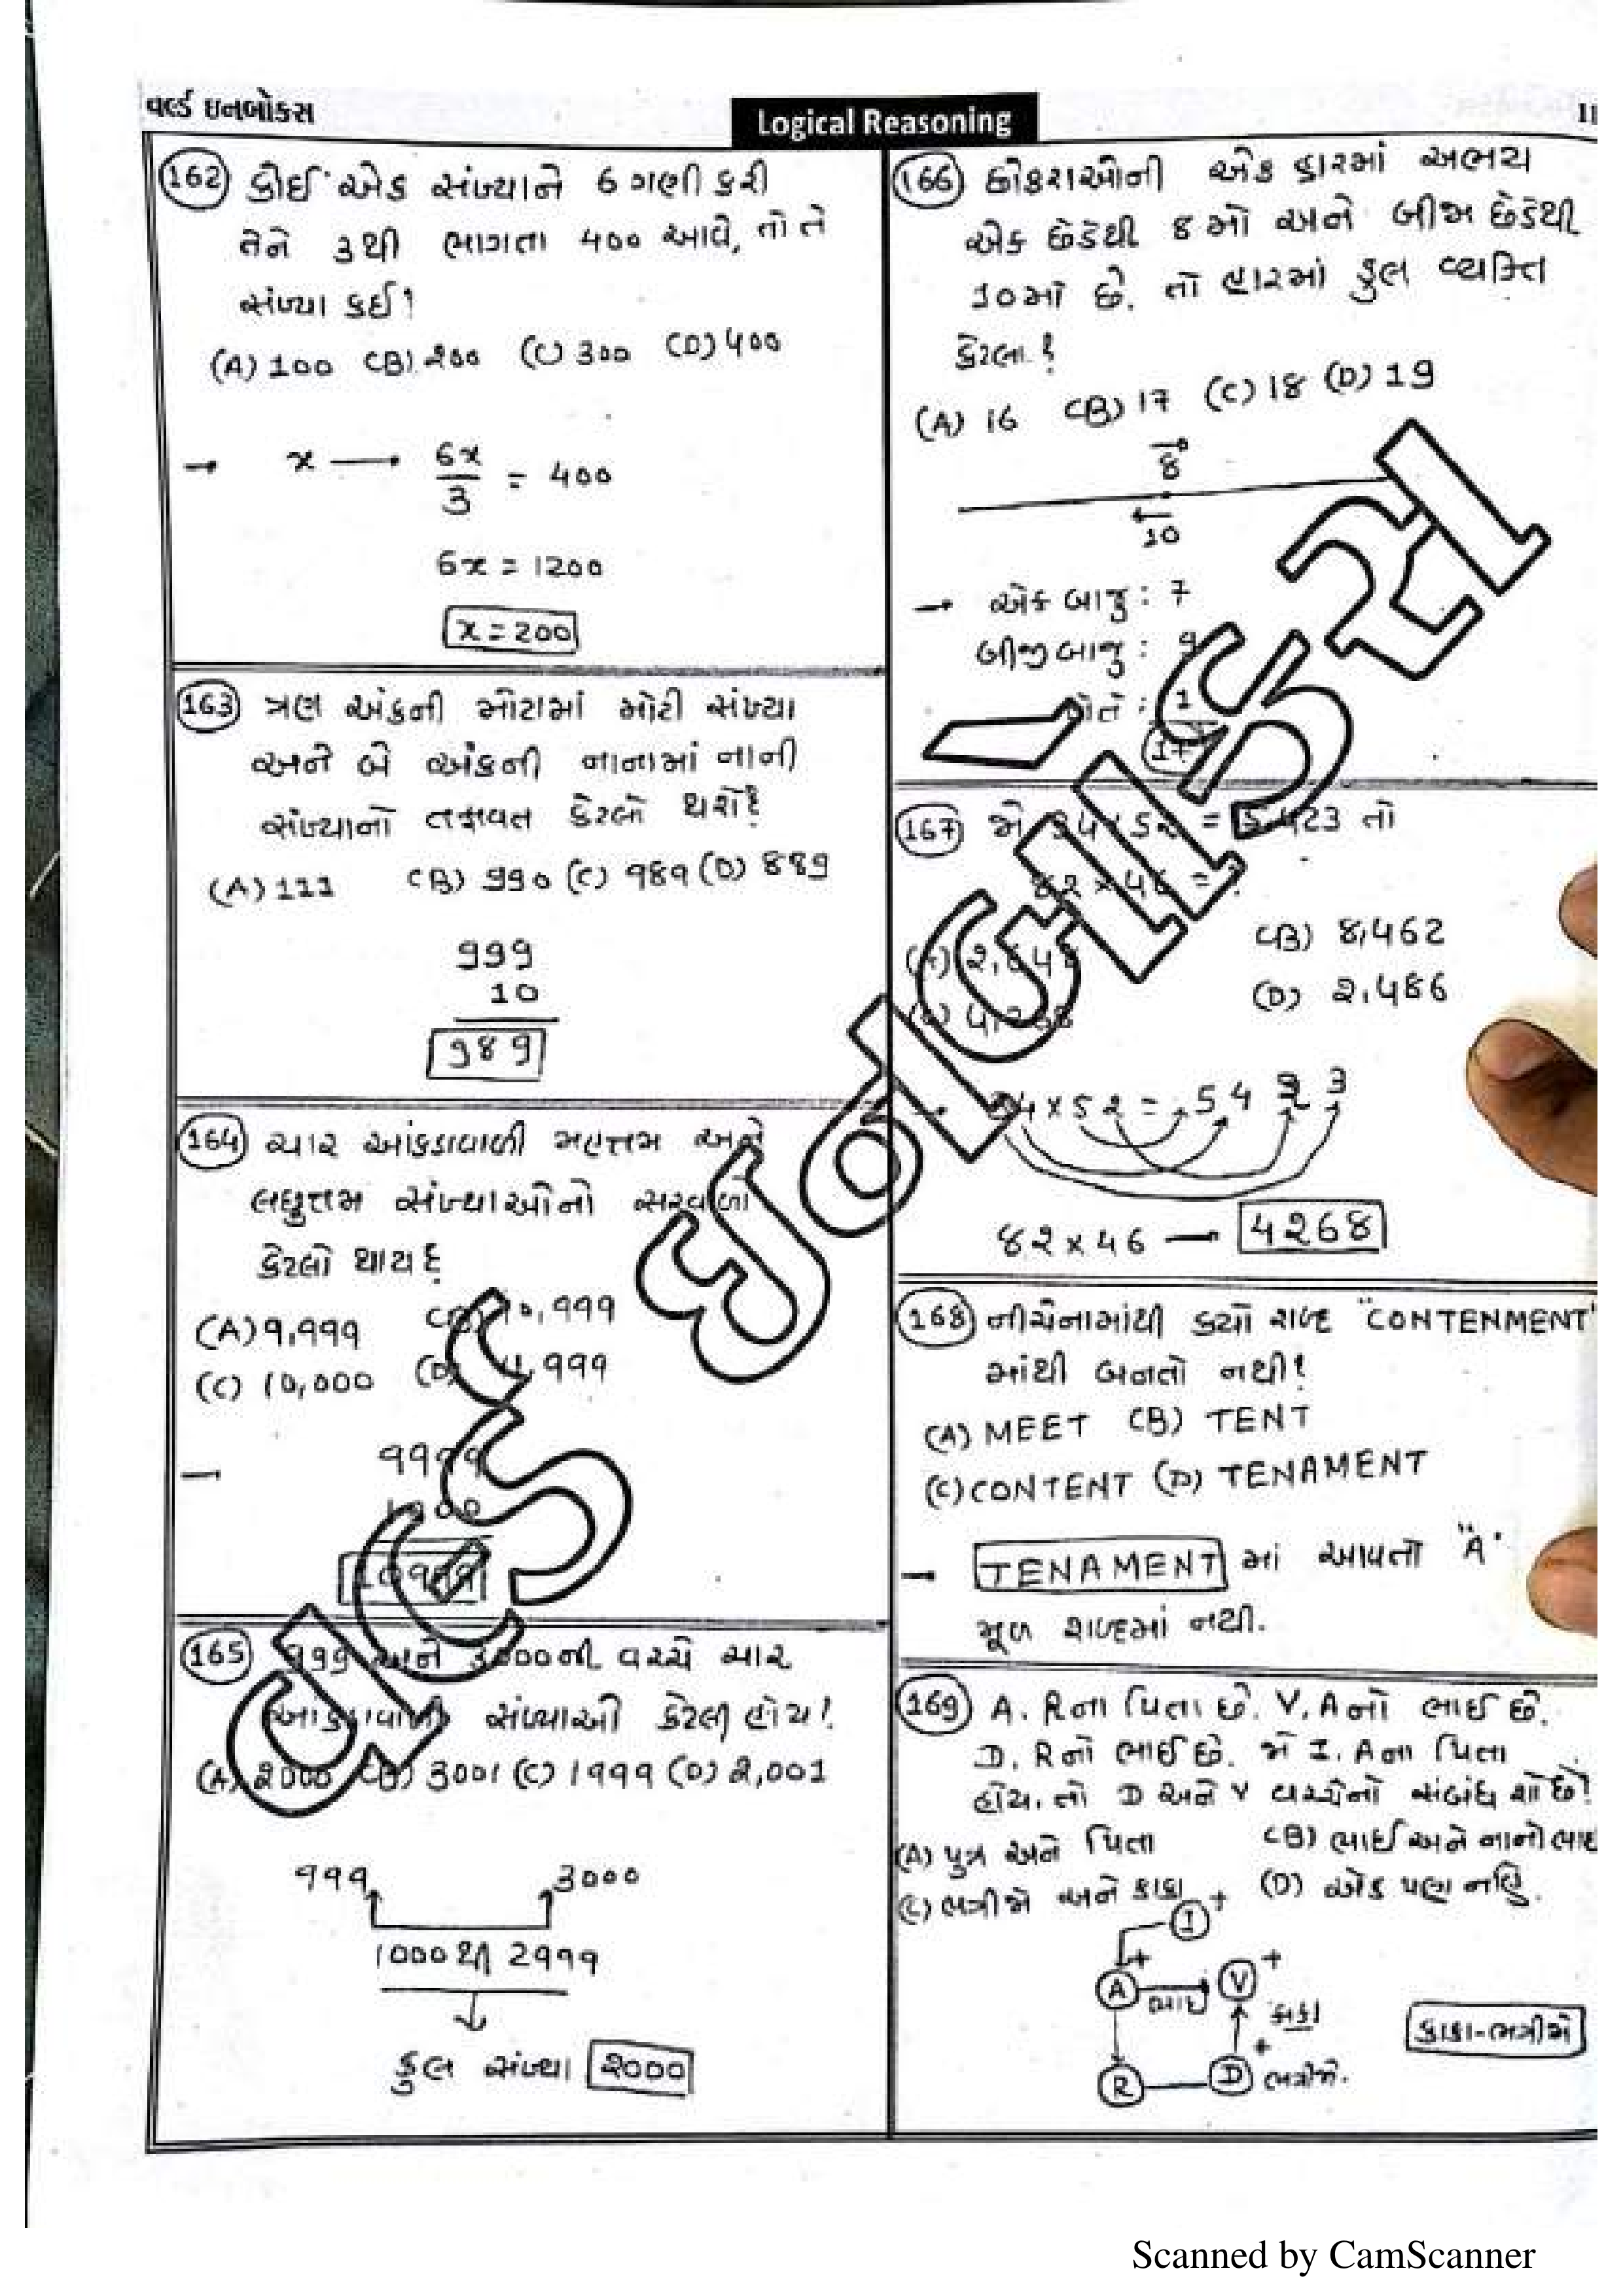 વર્લ્ડ ઇનબોક્સ
Logical Reasoning
11
162 કોઈ એક સંખ્યાને 6 ગણી કરી
તેને ૩થી ભાગતા 400 આવે, તો તે
સંખ્યા કઈ?
(A) 100 (B) 200 (C) 300 (D) 400
→ x → 6x/3 = 400
6x = 1200
x = 200
163 ત્રણ અંકની મોટામાં મોટી સંખ્યા
અને બે અંકની નાનામાં નાની
સંખ્યાનો તફાવત કેટલો થશે?
(A) 111 (B) 990 (C) 989 (D) 889
999
10
989
164 ચાર આંકડાવાળી મહત્તમ અને
લઘુત્તમ સંખ્યાઓનો સરવાળો
કેટલો થાય?
(A) 9,999 (B) 10,999
(C) 10,000 (D) ,999
9999
10999
165 999 અને 3000ની વચ્ચે ચાર
આંકડાવાળી સંખ્યાઓ કેટલી હોય?
(A) 2000 (B) 3001 (C) 1999 (D) 2,001
999 3000
1000 થી 2999
કુલ સંખ્યા 2000
166 છોકરાઓની એક હારમાં અભય
એક છેડેથી 8મો અને બીજા છેડેથી
10મો છે. તો હારમાં કુલ વ્યક્તિ
કેટલા?
(A) 16 (B) 17 (C) 18 (D) 19
8
10
→ એક બાજુ : 7
બીજી બાજુ : 9
પોતે : 1
17
167 જો 34 × 52 = 5,423 તો
82 × 46 = ?
(B) 8,462
(D) 2,486
34 × 52 = 5 4 2 3
82 × 46 → 4268
168 નીચેનામાંથી કયો શબ્દ "CONTENMENT"
માંથી બનતો નથી?
(A) MEET (B) TENT
(C) CONTENT (D) TENAMENT
→ TENAMENT માં આવતો "A"
મૂળ શબ્દમાં નથી.
169 A, Rના પિતા છે. V, Aનો ભાઈ છે.
D, Rનો ભાઈ છે. જો I, Aના પિતા
હોય, તો D અને V વચ્ચેનો સંબંધ શો છે?
(A) પુત્ર અને પિતા (B) ભાઈ અને નાનો ભાઈ
(C) ભત્રીજો અને કાકા (D) એક પણ નહિ.
I +
A + ભાઈ V +
કાકા
R D + ભત્રીજો.
કાકા-ભત્રીજો
Scanned by CamScanner